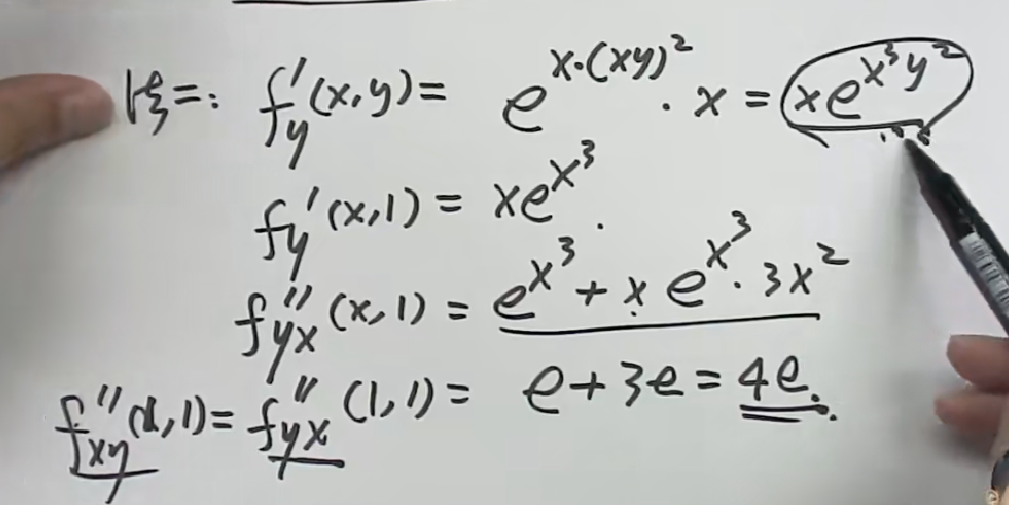 法二: f'_y(x,y) = e^{x·(xy)^2} · x = xe^{x^3y^2}
f'_y(x,1) = xe^{x^3}.
f''_{yx}(x,1) = e^{x^3} + x e^{x^3} · 3x^2
f''_{xy}(1,1) = f''_{yx}(1,1) = e+3e = 4e.